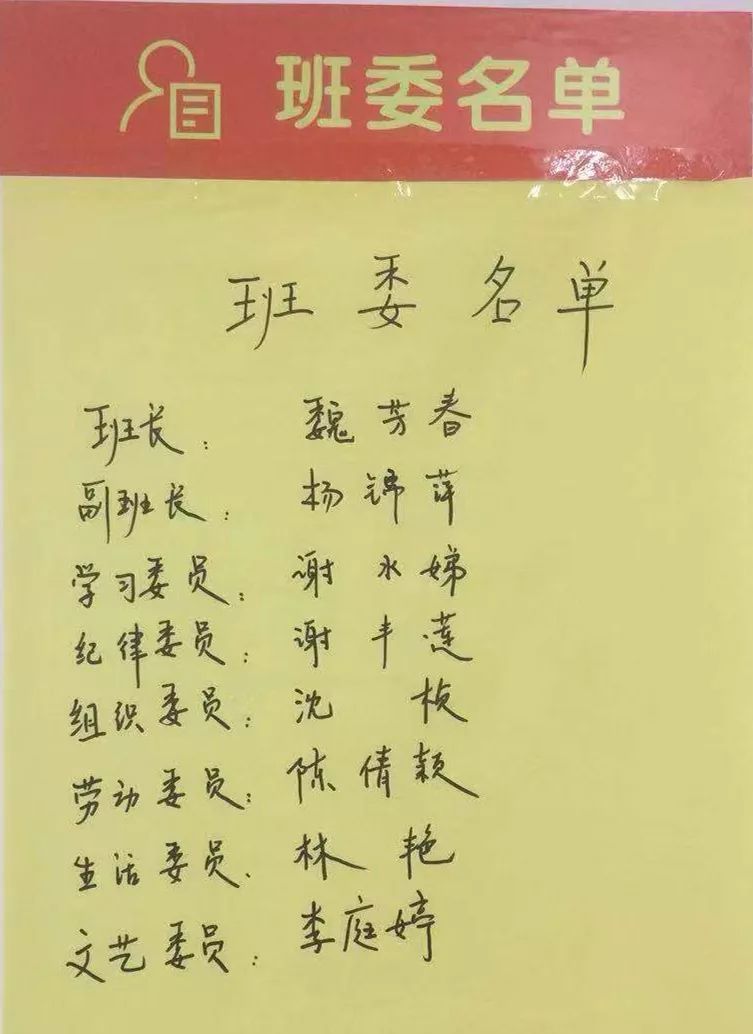 班委名单
班委名单
班长：魏芳春
副班长：杨锦萍
学习委员：谢水娣
纪律委员：谢丰莲
组织委员：沈 桢
劳动委员：陈倩颖
生活委员、林 艳
文艺委员：李庭婷